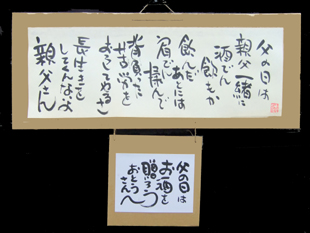 父の日は
酒でん
親父一緒に
飲もか
飲んだ
あとは
肩で揉んで
背負うた
苦労を
おろしてやるさ
長生きを
してくんなよ
親父さん
父の日は
お酒を
贈ろう
おとうさんへ